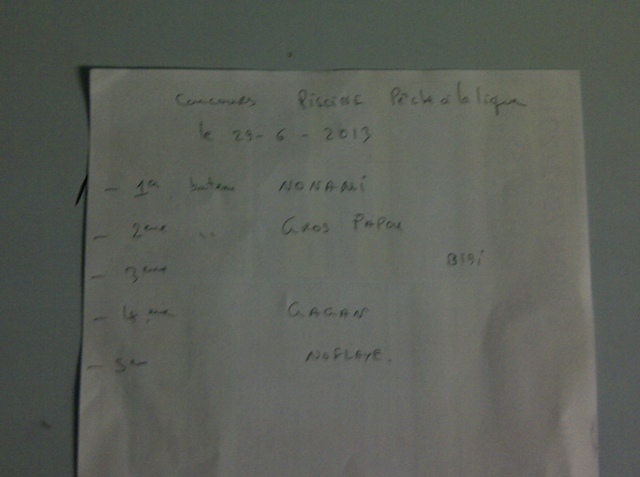 Concours PISCINE Pêche à la ligne
le 29-6-2013
- 1er bateau NONAMI
- 2eme " GROS PAPOU
- 3eme BIBI
- 4eme GAGAN
- 5em NOFLAYE.